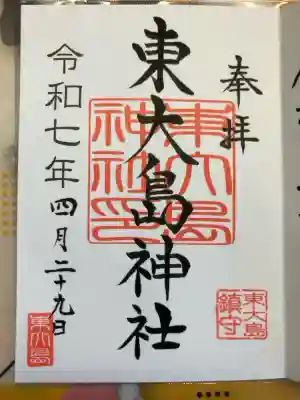 奉拝
東大島神社
東大島神社印
東大島鎮守
令和七年四月二十九日
東大島